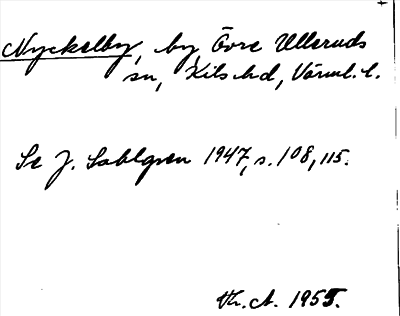 Nyckelby, by, Övre Ulleruds
sn, Kils hd, Värml. l.
Se J. Sahlgren 1947, s. 108, 115.
Th. A. 1955.